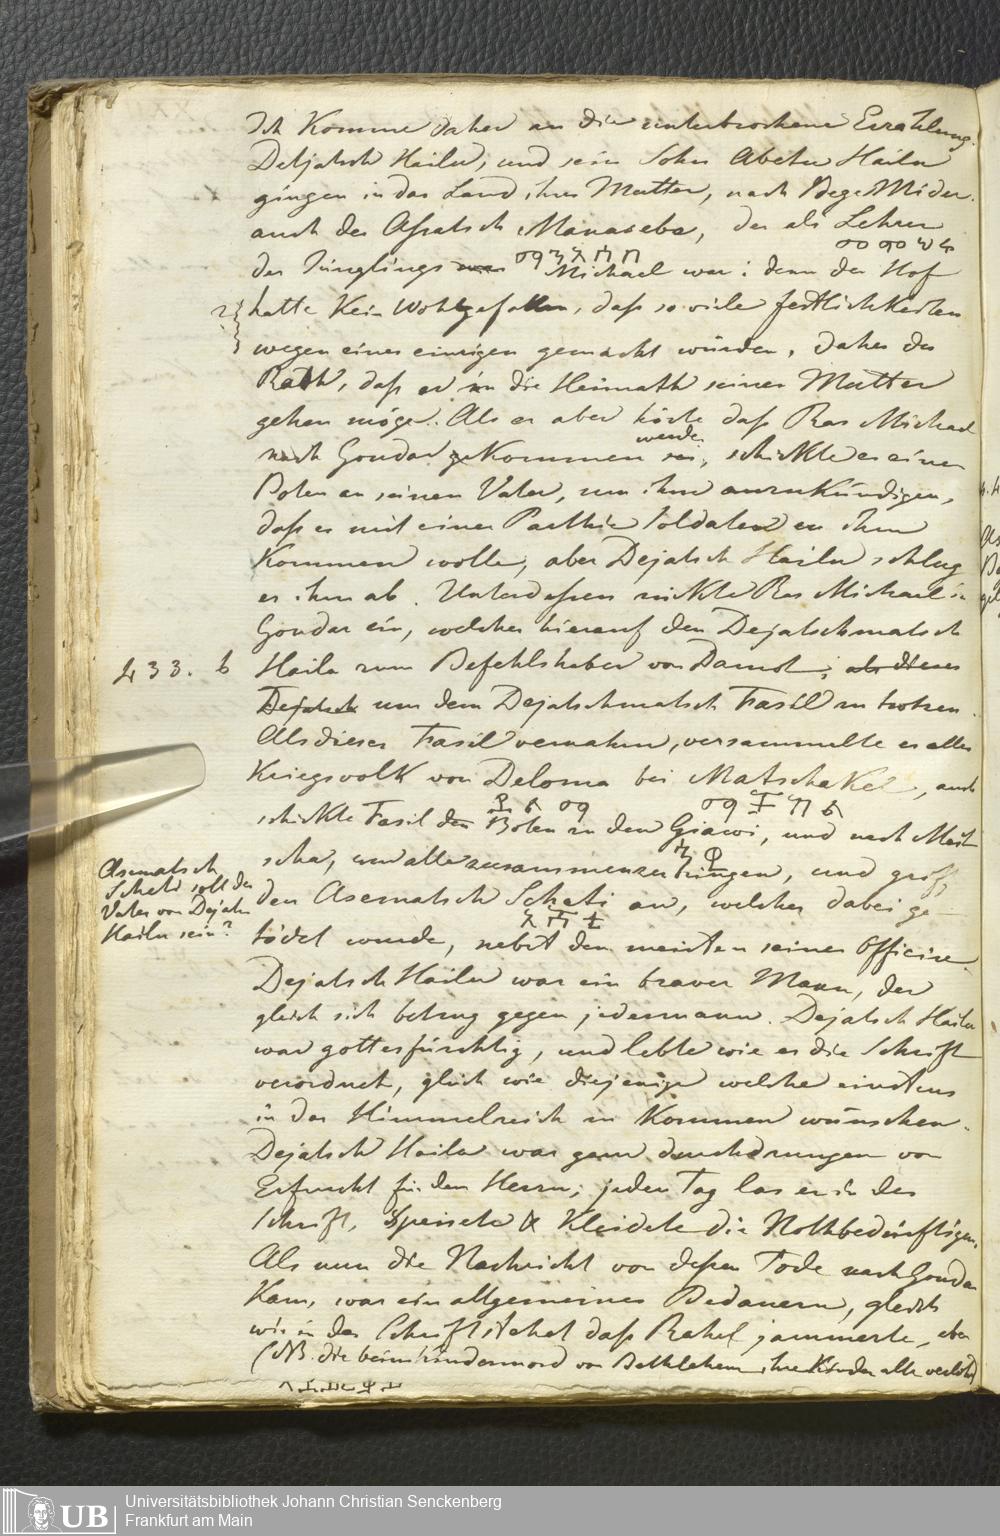 Ich komme daher an die unterbrochene Erzählung.
Detjatsch Hailu, und sein Sohn Abeku Hailu
gingen in das Land ihrer Mutter, nach Bege Mider.
auch der Afsatsch Manaseba, der als Lehrer
des Jünglings Michael war: denn der Hof
hatte kein Wohlgefallen, daß so viele festlichkeiten
wegen eines einzigen gemacht würden, daher der
Rath, daß er in die Heimath seiner Mutter
gehen möge. Als er aber hörte daß Ras Michael
nach Gondar gekommen sei, schickte er einen
werde
Boten an seinen Vater, um ihm anzukündigen,
daß er mit einer Parthie Soldaten zu ihm
kommen wolle, aber Dejatsch Hailu schlug
es ihm ab. Unterdessen rückte Ras Michael in
Gondar ein, welcher hierauf den Dejatschmatsch
433. b Hailu zum Befehlshaber von Damot; als dieses
Dejatsch um dem Dejatschmatsch Fasil zu trotzen.
Als dieser Fasil vernahm, versammelte er alles
Kriegsvolk von Deloma bei Matschakel, auch
schickte Fasil den Boten zu den Giawi, und nach Meit
scha, um alle zusammenzubringen, und griff
Asematsch
Scheti soll der
Vater von Dejatsch
Hailu sein?
den Asematsch Scheti an, welcher dabei ge-
tödet wurde, nebst den meisten seiner Officire.
Dejatsch Hailu war ein braver Mann, der
gleich sich betrug gegen jedermann. Dejatsch Hailu
war gottesfürchtig, und lebte wie es die Schrift
verordnet, gleich wie diejenige welche einstens
in das Himmelreich zu kommen wünschen.
Dejatsch Hailu war ganz durchdrungen von
Erfurcht für den Herrn; jeden Tag las er in der
Schrift, speisete & kleidete die Nothbedürftigen.
Als nun die Nachricht von dessen Tode nach Gondar
kam, war ein allgemeines Bedauern, gleich
wie in der Schrift stehet daß Rahel jammerte, eben
(NB. die beim Kindermord von Bethlehem ihre Kinder alle verlohr)
Universitätsbibliothek Johann Christian Senckenberg
Frankfurt am Main
UB